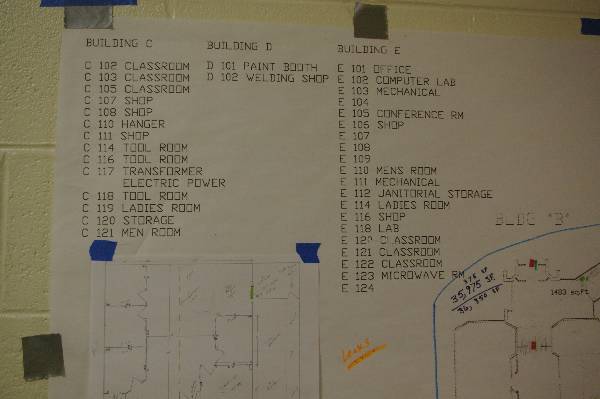 BUILDING C
C 102 CLASSROOM
C 103 CLASSROOM
C 105 CLASSROOM
C 107 SHOP
C 108 SHOP
C 110 HANGER
C 111 SHOP
C 114 TOOL ROOM
C 116 TOOL ROOM
C 117 TRANSFORMER
ELECTRIC POWER
C 118 TOOL ROOM
C 119 LADIES ROOM
C 120 STORAGE
C 121 MEN ROOM
BUILDING D
D 101 PAINT BOOTH
D 102 WELDING SHOP
BUILDING E
E 101 OFFICE
E 102 COMPUTER LAB
E 103 MECHANICAL
E 104
E 105 CONFERENCE RM
E 106 SHOP
E 107
E 108
E 109
E 110 MENS ROOM
E 111 MECHANICAL
E 112 JANITORIAL STORAGE
E 114 LADIES ROOM
E 116 SHOP
E 118 LAB
E 120 CLASSROOM
E 121 CLASSROOM
E 122 CLASSROOM
E 123 MICROWAVE RM
E 124
BLDG "B"
375 SF
35,975 SF
36,350 SF
1483 sqft
Leaks